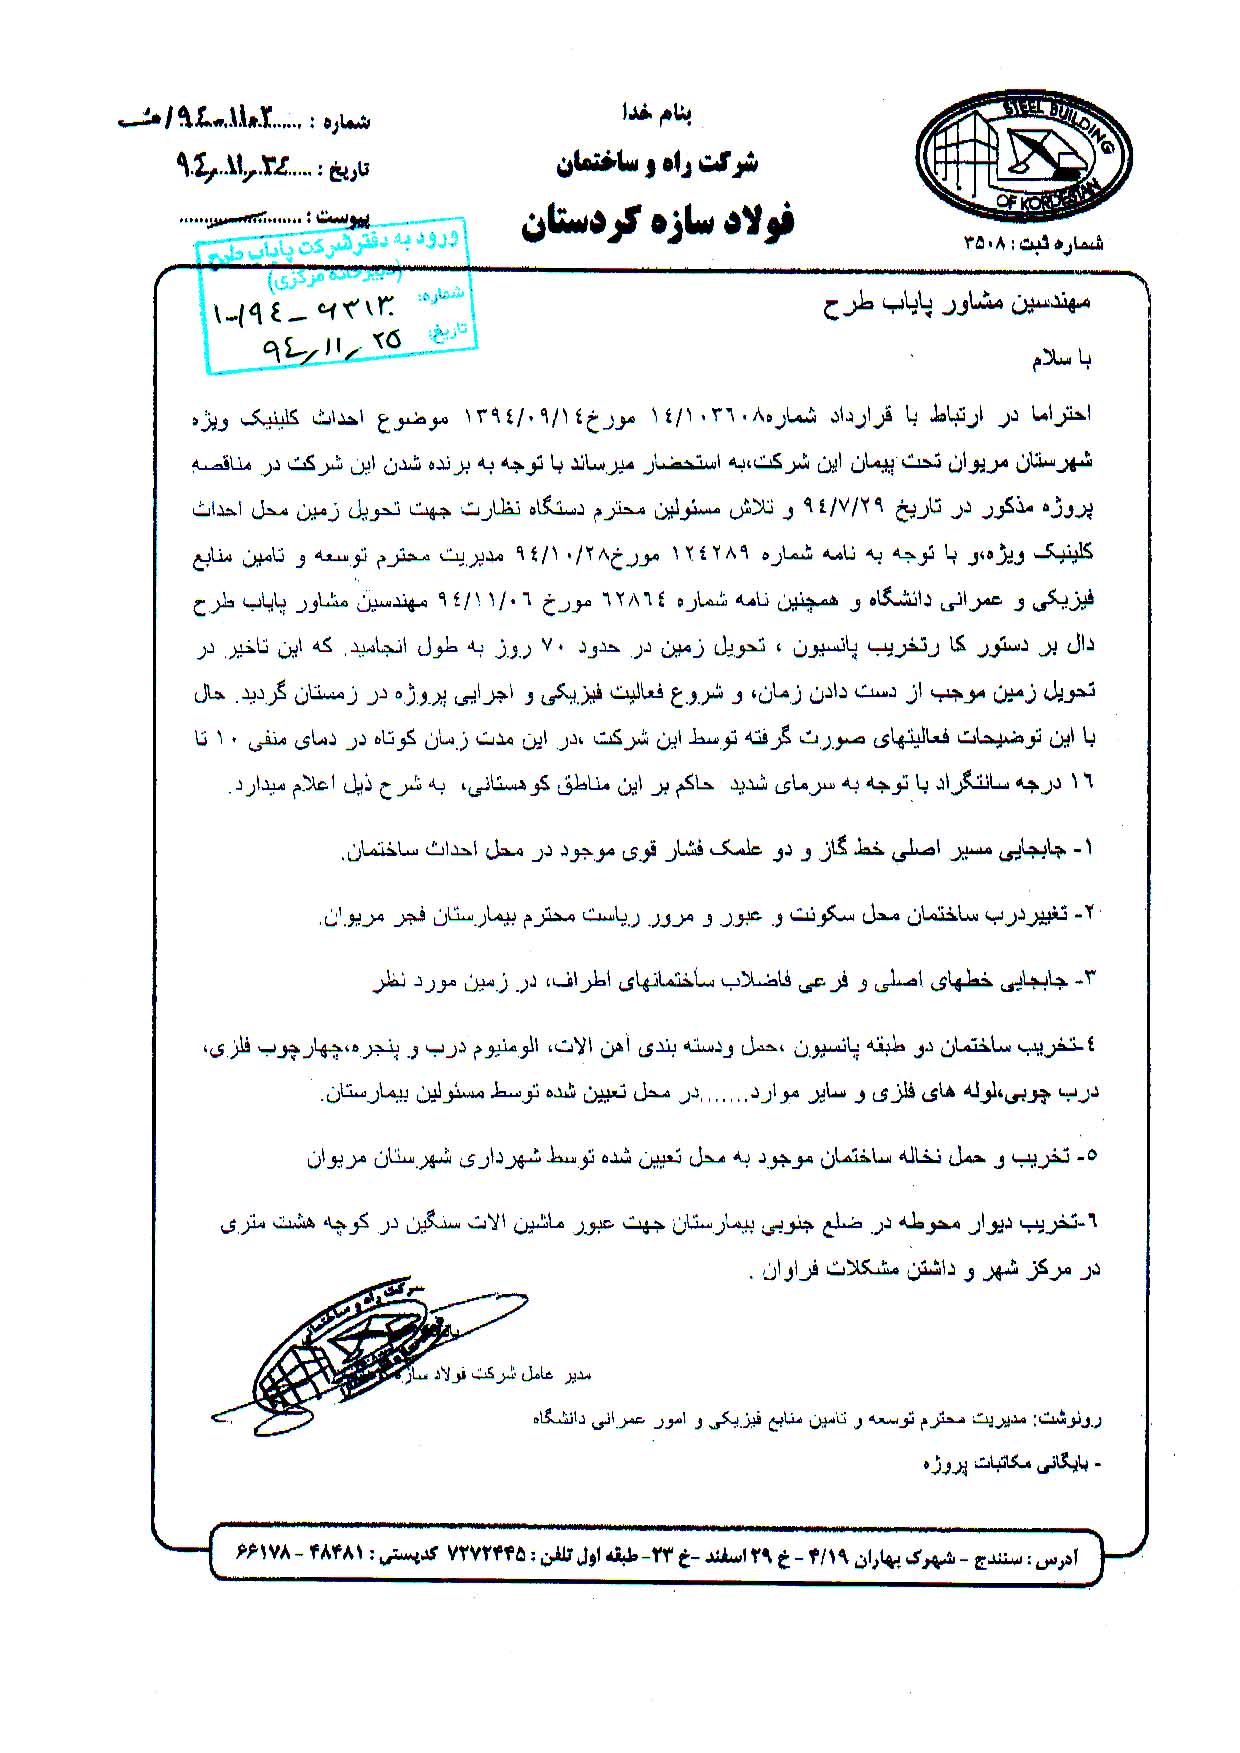 STEEL BUILDING
OF KORDESTAN
شماره ثبت : ۳۵۰۸
بنام خدا
شرکت راه و ساختمان
فولاد سازه کردستان
شماره :
تاریخ : ۹٤٫۱۱٫۲٤
پیوست :
ورود به دفتر شرکت پایاب طرح
(دبیرخانه مرکزی)
شماره:
تاریخ: ۹٤٫۱۱٫۲۵
مهندسین مشاور پایاب طرح
با سلام
احتراما در ارتباط با قرارداد شماره۱٤/۱۰۳٦۰۸ مورخ۱۳۹٤/۰۹/۱٤ موضوع احداث کلینیک ویژه
شهرستان مریوان تحت پیمان این شرکت،به استحضار میرساند با توجه به برنده شدن این شرکت در مناقصه
پروژه مذکور در تاریخ ۹٤/۷/۲۹ و تلاش مسئولین محترم دستگاه نظارت جهت تحویل زمین محل احداث
کلینیک ویژه،و با توجه به نامه شماره ۱۲٤۲۸۹ مورخ۹٤/۱۰/۲۸ مدیریت محترم توسعه و تامین منابع
فیزیکی و عمرانی دانشگاه و همچنین نامه شماره ٦۲۸٦٤ مورخ ۹٤/۱۱/۰٦ مهندسین مشاور پایاب طرح
دال بر دستور کا رتخریب پانسیون ، تحویل زمین در حدود ۷۰ روز به طول انجامید. که این تاخیر در
تحویل زمین موجب از دست دادن زمان، و شروع فعالیت فیزیکی و اجرایی پروژه در زمستان گردید. حال
با این توضیحات فعالیتهای صورت گرفته توسط این شرکت ،در این مدت زمان کوتاه در دمای منفی ۱۰ تا
۱٦ درجه سانتگراد با توجه به سرمای شدید حاکم بر این مناطق کوهستانی، به شرح ذیل اعلام میدارد.
۱- جابجایی مسیر اصلی خط گاز و دو علمک فشار قوی موجود در محل احداث ساختمان.
۲- تغییردرب ساختمان محل سکونت و عبور و مرور ریاست محترم بیمارستان فجر مریوان.
۳- جابجایی خطهای اصلی و فرعی فاضلاب ساختمانهای اطراف، در زمین مورد نظر
٤-تخریب ساختمان دو طبقه پانسیون ،حمل ودسته بندی آهن الات، الومنیوم درب و پنجره،چهارچوب فلزی،
درب چوبی،لوله های فلزی و سایر موارد.......در محل تعیین شده توسط مسئولین بیمارستان.
۵- تخریب و حمل نخاله ساختمان موجود به محل تعیین شده توسط شهرداری شهرستان مریوان
٦-تخریب دیوار محوطه در ضلع جنوبی بیمارستان جهت عبور ماشین الات سنگین در کوچه هشت متری
در مرکز شهر و داشتن مشکلات فراوان .
مدیر عامل شرکت فولاد سازه
رونوشت: مدیریت محترم توسعه و تامین منابع فیزیکی و امور عمرانی دانشگاه
- بایگانی مکاتبات پروژه
آدرس : سنندج - شهرک بهاران ۴/۱۹ - خ ۲۹ اسفند -خ ۲۳- طبقه اول تلفن : ۷۲۷۲۴۴۵ کدپستی : ۴۸۴۸۱ - ۶۶۱۷۸